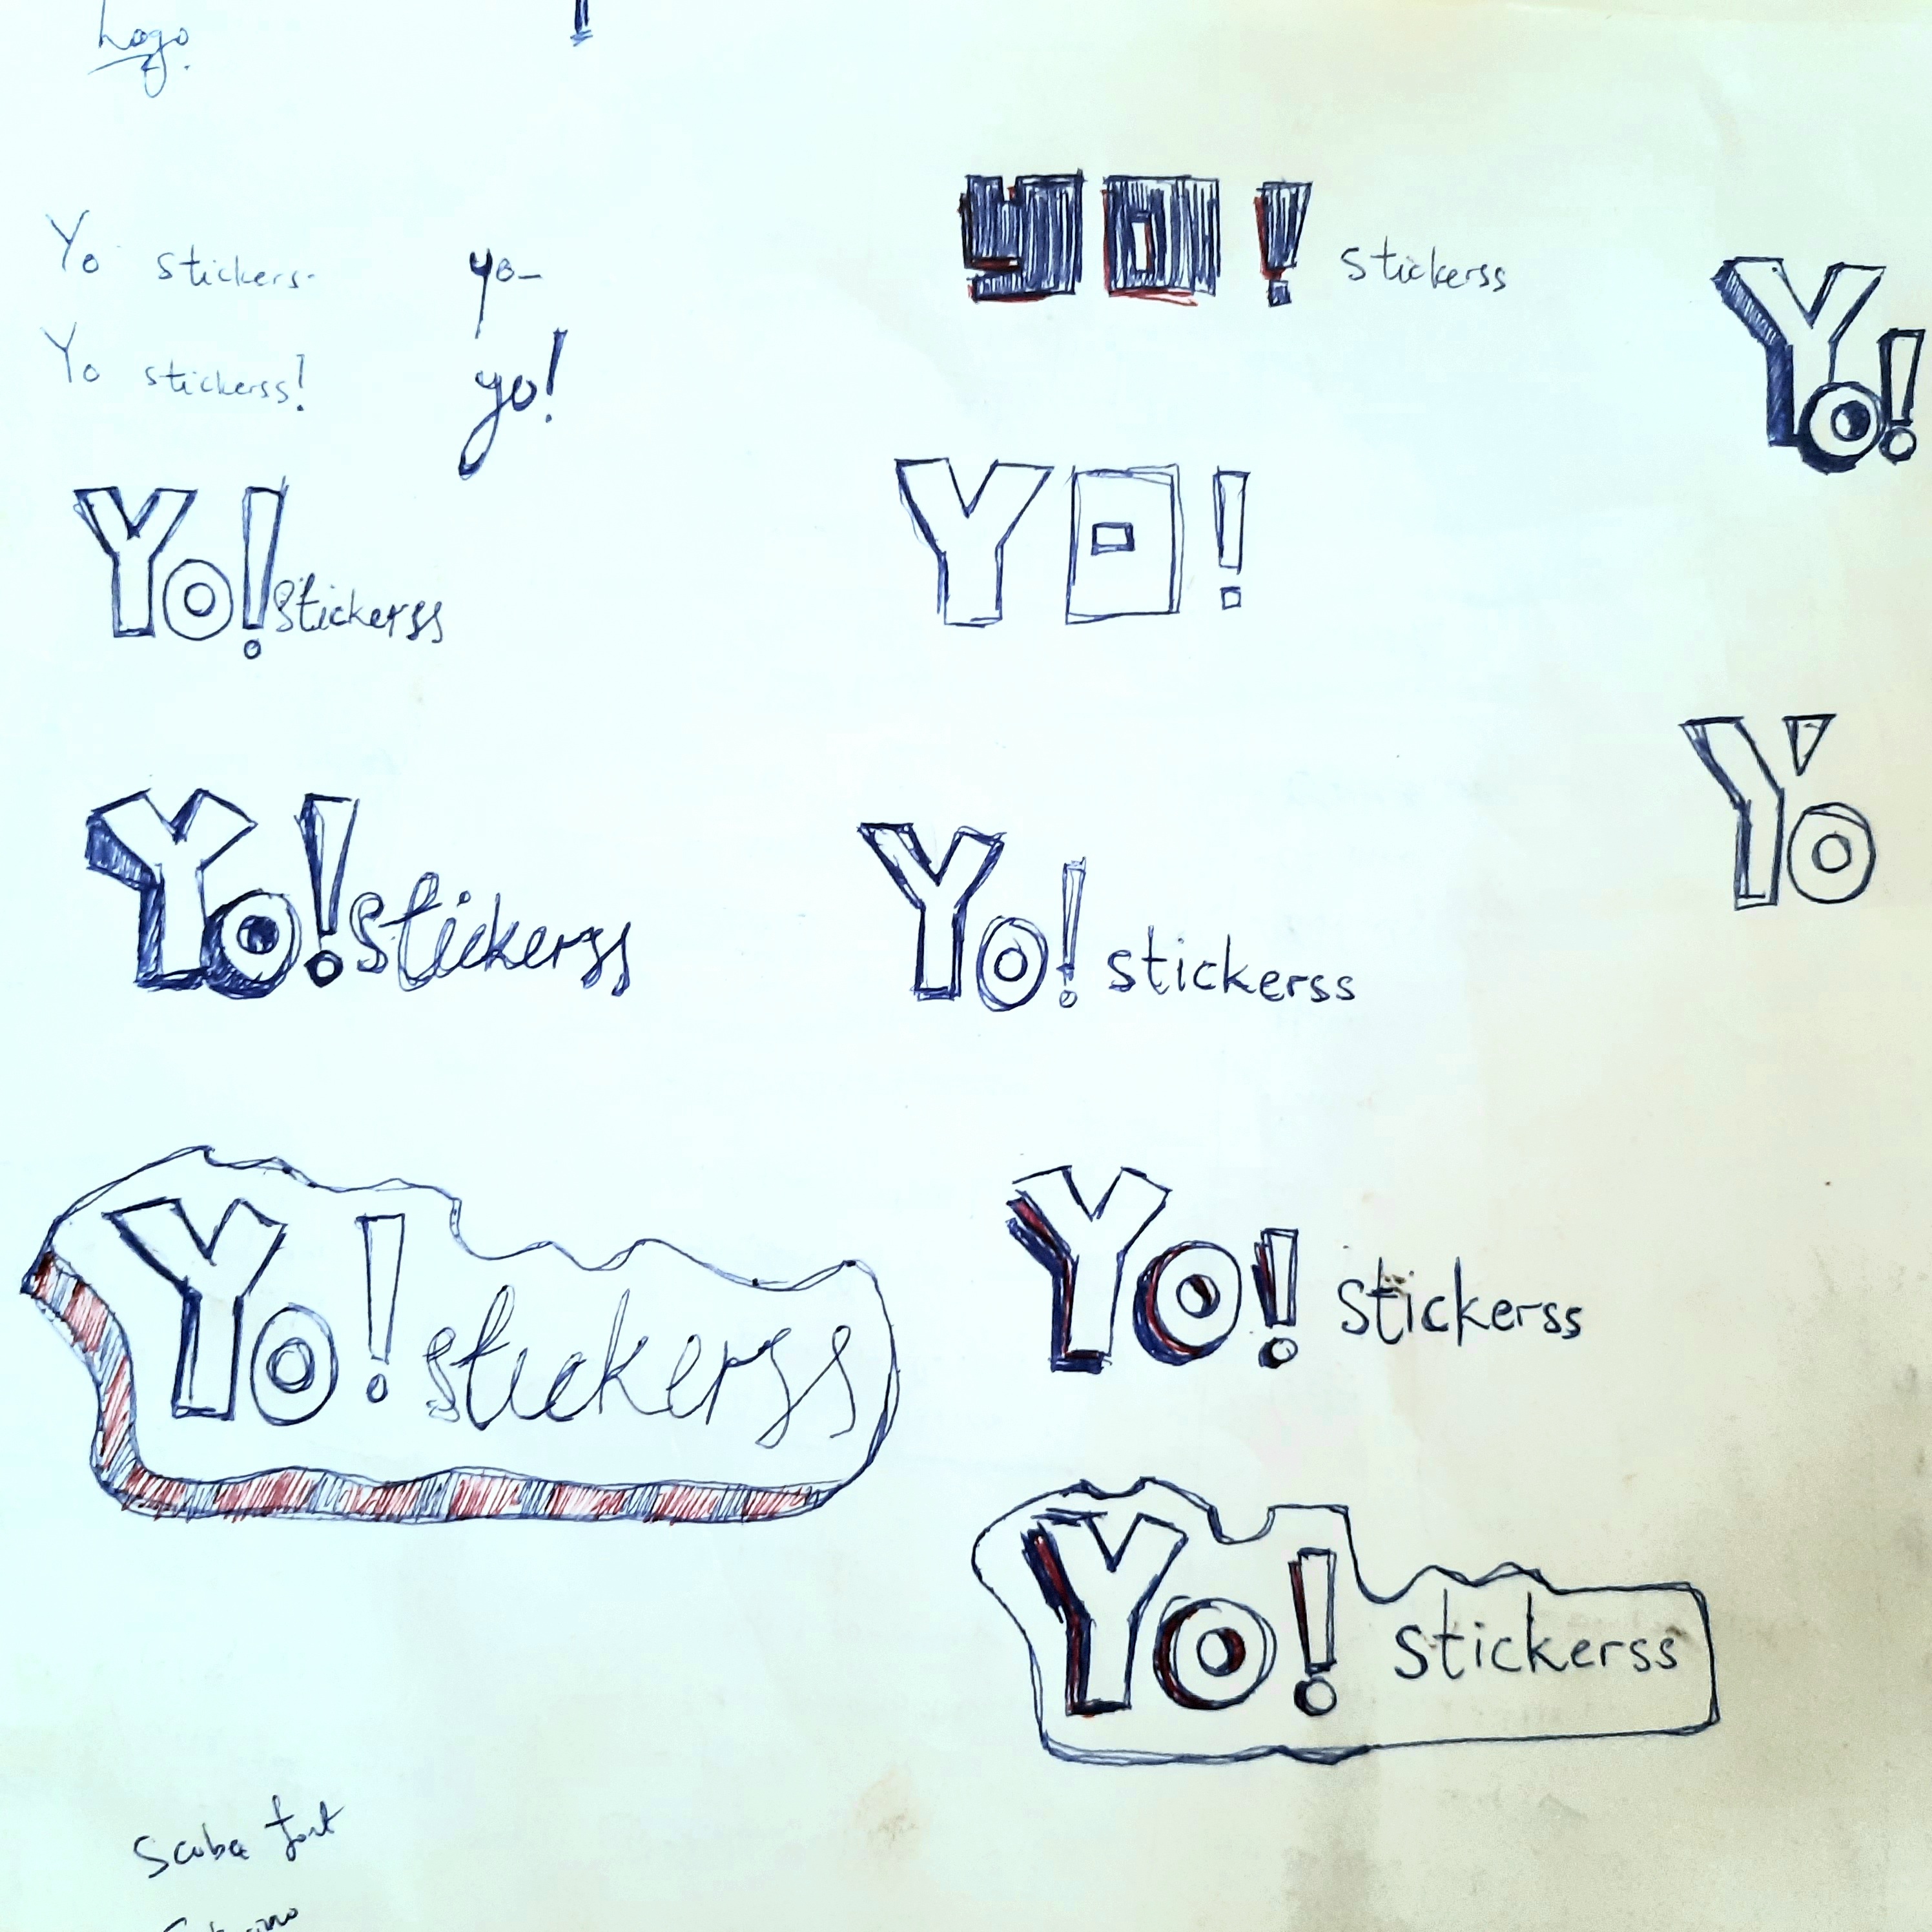 Logo.
Yo stickers.
yo-
Yo stickerss!
yo!
Yo! stickerss
YO! stickerss
Yo!
YO!
Yo
Yo! stickerss
Yo! stickerss
Yo! stickerss
Yo! stickerss
Yo! stickerss
Scuba font